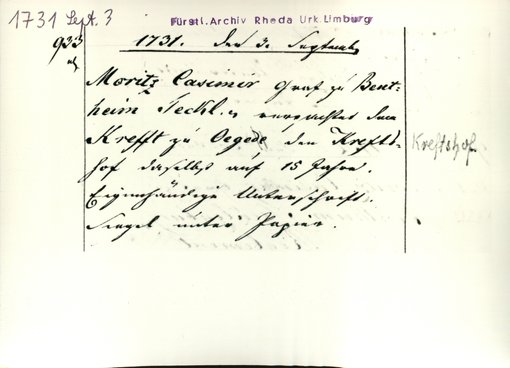 1731 Sept. 3
Fürstl. Archiv Rheda Urk. Limburg
933
1731. den 3. Septemb.
Moritz Casimir Graf zu Bent=
heim Teckl. verpachtet dem
Krefft zu Oegede den Krefts=
hof daselbst auf 15 Jahre.
Kreftshof
Eigenhändige Unterschrift.
Siegel unter Papier.